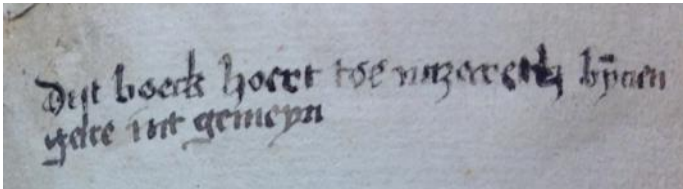 Dyt boeck hoert toe nazareth bynnen
gelre int gemeyn